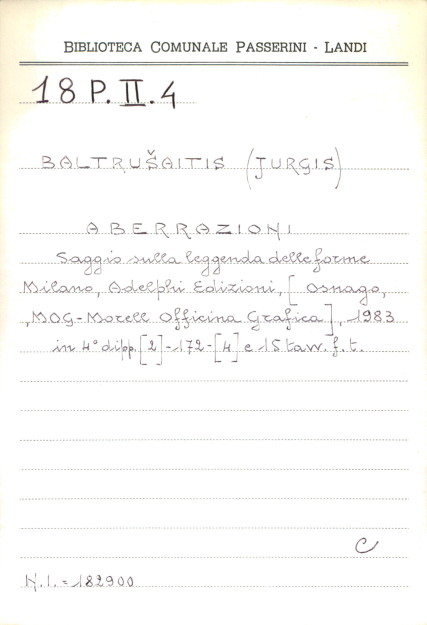 BIBLIOTECA COMUNALE PASSERINI - LANDI
18 P. II. 4
BALTRUŠAITIS (JURGIS)
ABERRAZIONI
Saggio sulla leggenda delle forme
Milano, Adelphi Edizioni, [Osnago,
MOG-Morell Officina Grafica], 1983
in 4° di pp. [2]-172-[4] e 15 tavv. f. t.
C
N. I. = 182900